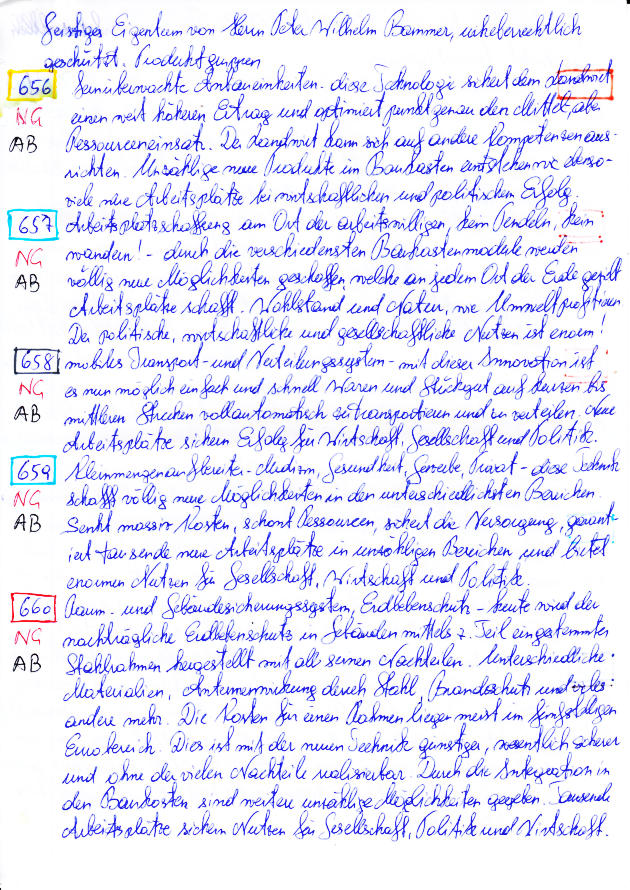 Geistiges Eigentum von Herrn Peter Wilhelm Bammer, urheberrechtlich
geschützt. Produktgruppen
656 Fernüberwachte Anbaueinheiten - diese Technologie sichert dem Landwirt
NG einen weit höheren Ertrag und optimiert punktgenau den Mittel, aber
AB Ressourceneinsatz. Der Landwirt kann sich auf andere Kompetenzen aus-
richten. Unzählige neue Produkte im Baukasten entstehen wie ebenso-
viele neue Arbeitsplätze bei wirtschaftlichen und politischem Erfolg.
657 Arbeitsplatzschaffung am Ort der arbeitswilligen, kein Pendeln, kein
NG wandern! - durch die verschiedensten Baukastenmodule werden
AB völlig neue Möglichkeiten geschaffen, welche an jedem Ort der Erde gezielt
Arbeitsplätze schafft. Wohlstand und Natur, wie Umwelt profitieren
Der politische, wirtschaftliche und gesellschaftliche Nutzen ist enorm!
658 mobiles Transport- und Verteilungssystem - mit dieser Innovation ist
NG es nun möglich einfach und schnell Waren und Stückgut auf kurzen bis
AB mittleren Strecken vollautomatisch zu transportieren und zu verteilen. Neue
Arbeitsplätze sichern Erfolg für Wirtschaft, Gesellschaft und Politik.
659 Kleinmengenaufbereiter - Medizin, Gesundheit, Gewerbe, Privat - diese Technik
NG schafft völlig neue Möglichkeiten in den unterschiedlichsten Bereichen.
AB Senkt massiv Kosten, schont Ressourcen, sichert die Versorgung, garant-
iert tausende neue Arbeitsplätze in unzähligen Bereichen und bietet
enormen Nutzen für Gesellschaft, Wirtschaft und Politik.
660 Raum- und Gebäudesicherungssystem, Erdbebenschutz - heute wird der
NG nachträgliche Erdbebenschutz in Gebäuden mittels z. Teil eingestemmter
AB Stahlrahmen hergestellt mit all seinen Nachteilen. Unterschiedliche
Materialien, Antennenwirkung durch Stahl, Brandschutz und vieles
andere mehr. Die Kosten für einen Rahmen liegen meist im fünfstelligen
Eurobereich. Dies ist mit der neuen Technik günstiger, wesentlich sicherer
und ohne der vielen Nachteile realisierbar. Durch die Integration in
den Baukasten sind weitere unzählige Möglichkeiten gegeben. Tausende
Arbeitsplätze sichern Nutzen für Gesellschaft, Politik und Wirtschaft.